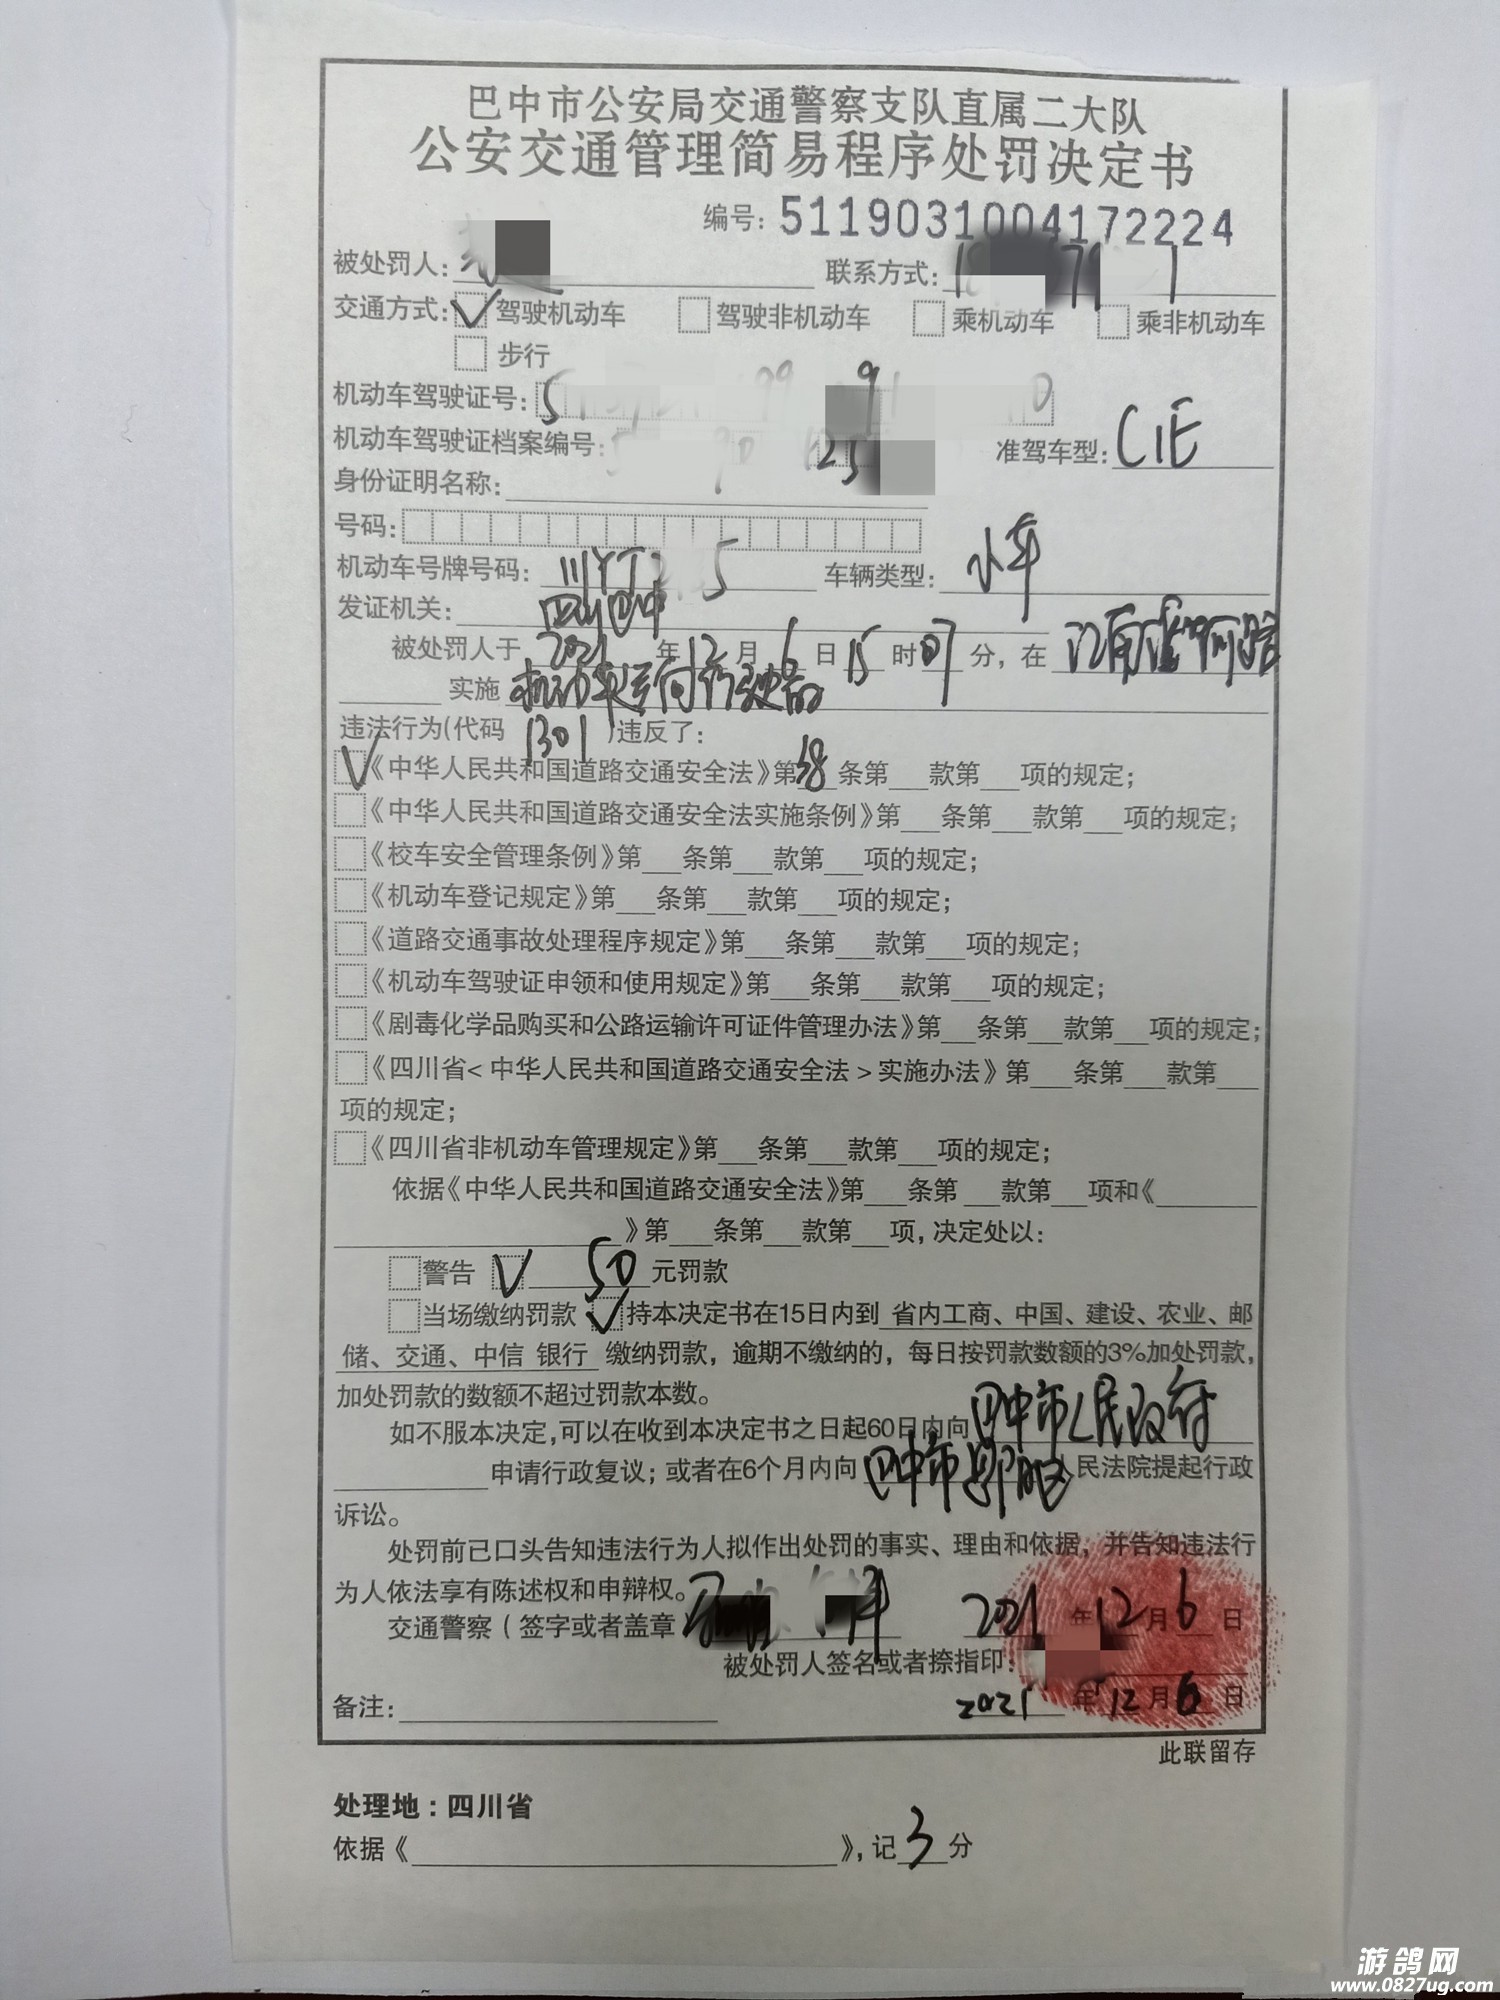 巴中市公安局交通警察支队直属二大队
公安交通管理简易程序处罚决定书
编号：5119031004172224
被处罚人： 联系方式：
交通方式：√驾驶机动车 驾驶非机动车 乘机动车 乘非机动车
步行
机动车驾驶证号：5
机动车驾驶证档案编号： 准驾车型：C1E
身份证明名称：
号码：
机动车号牌号码：川YT 5 车辆类型：小车
发证机关：四川巴中
被处罚人于2021年12月6日15时07分，在江南 河路
实施机动车逆向行驶的
违法行为(代码1301)违反了：
√《中华人民共和国道路交通安全法》第38条第___款第___项的规定；
《中华人民共和国道路交通安全法实施条例》第___条第___款第___项的规定；
《校车安全管理条例》第___条第___款第___项的规定；
《机动车登记规定》第___条第___款第___项的规定；
《道路交通事故处理程序规定》第___条第___款第___项的规定；
《机动车驾驶证申领和使用规定》第___条第___款第___项的规定；
《剧毒化学品购买和公路运输许可证件管理办法》第___条第___款第___项的规定；
《四川省<中华人民共和国道路交通安全法>实施办法》第___条第___款第___
项的规定；
《四川省非机动车管理规定》第___条第___款第___项的规定；
依据《中华人民共和国道路交通安全法》第___条第___款第___项和《
》第___条第___款第___项，决定处以：
警告 √ 50元罚款
当场缴纳罚款 √持本决定书在15日内到 省内工商、中国、建设、农业、邮
储、交通、中信 银行 缴纳罚款，逾期不缴纳的，每日按罚款数额的3%加处罚款，
加处罚款的数额不超过罚款本数。
如不服本决定，可以在收到本决定书之日起60日内向巴中市人民政府
申请行政复议；或者在6个月内向巴中市恩阳区人民法院提起行政
诉讼。
处罚前已口头告知违法行为人拟作出处罚的事实、理由和依据，并告知违法行
为人依法享有陈述权和申辩权。
交通警察（签字或者盖章） 2021年12月6日
被处罚人签名或者捺指印：
2021年12月6日
备注：
此联留存
处理地：四川省
依据《 》，记3分
游鸽网
www.0827ug.com